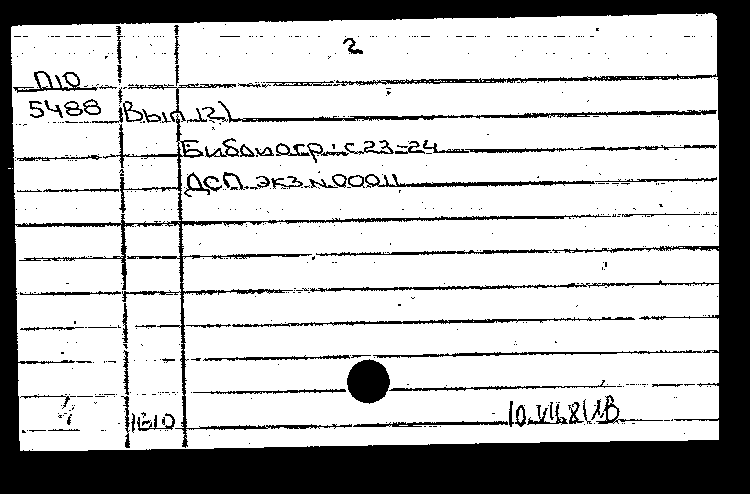 2
П10
5488 Вып 12)
Библиогр.: с 23-24
ДСП экз. N 00011
4
1Б10
10.VII.81